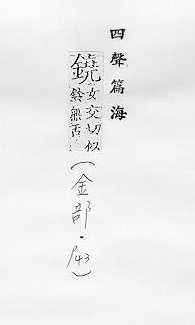 四聲篇海
女交切似
鈴無舌
(金部.143)